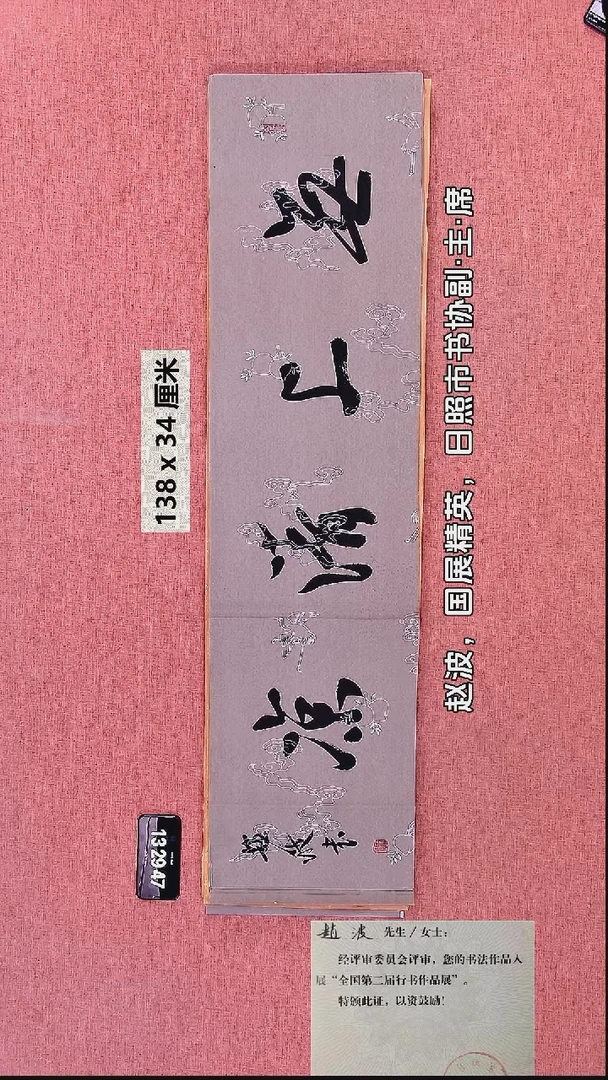 無上清凉
趙波书
138 x 34 厘米
赵波，国展精英，日照市书协副·主·席
13:29:47
趙波 先生/女士：
经评审委员会评审，您的书法作品入
展“全国第二届行书作品展”。
特颁此证，以资鼓励！